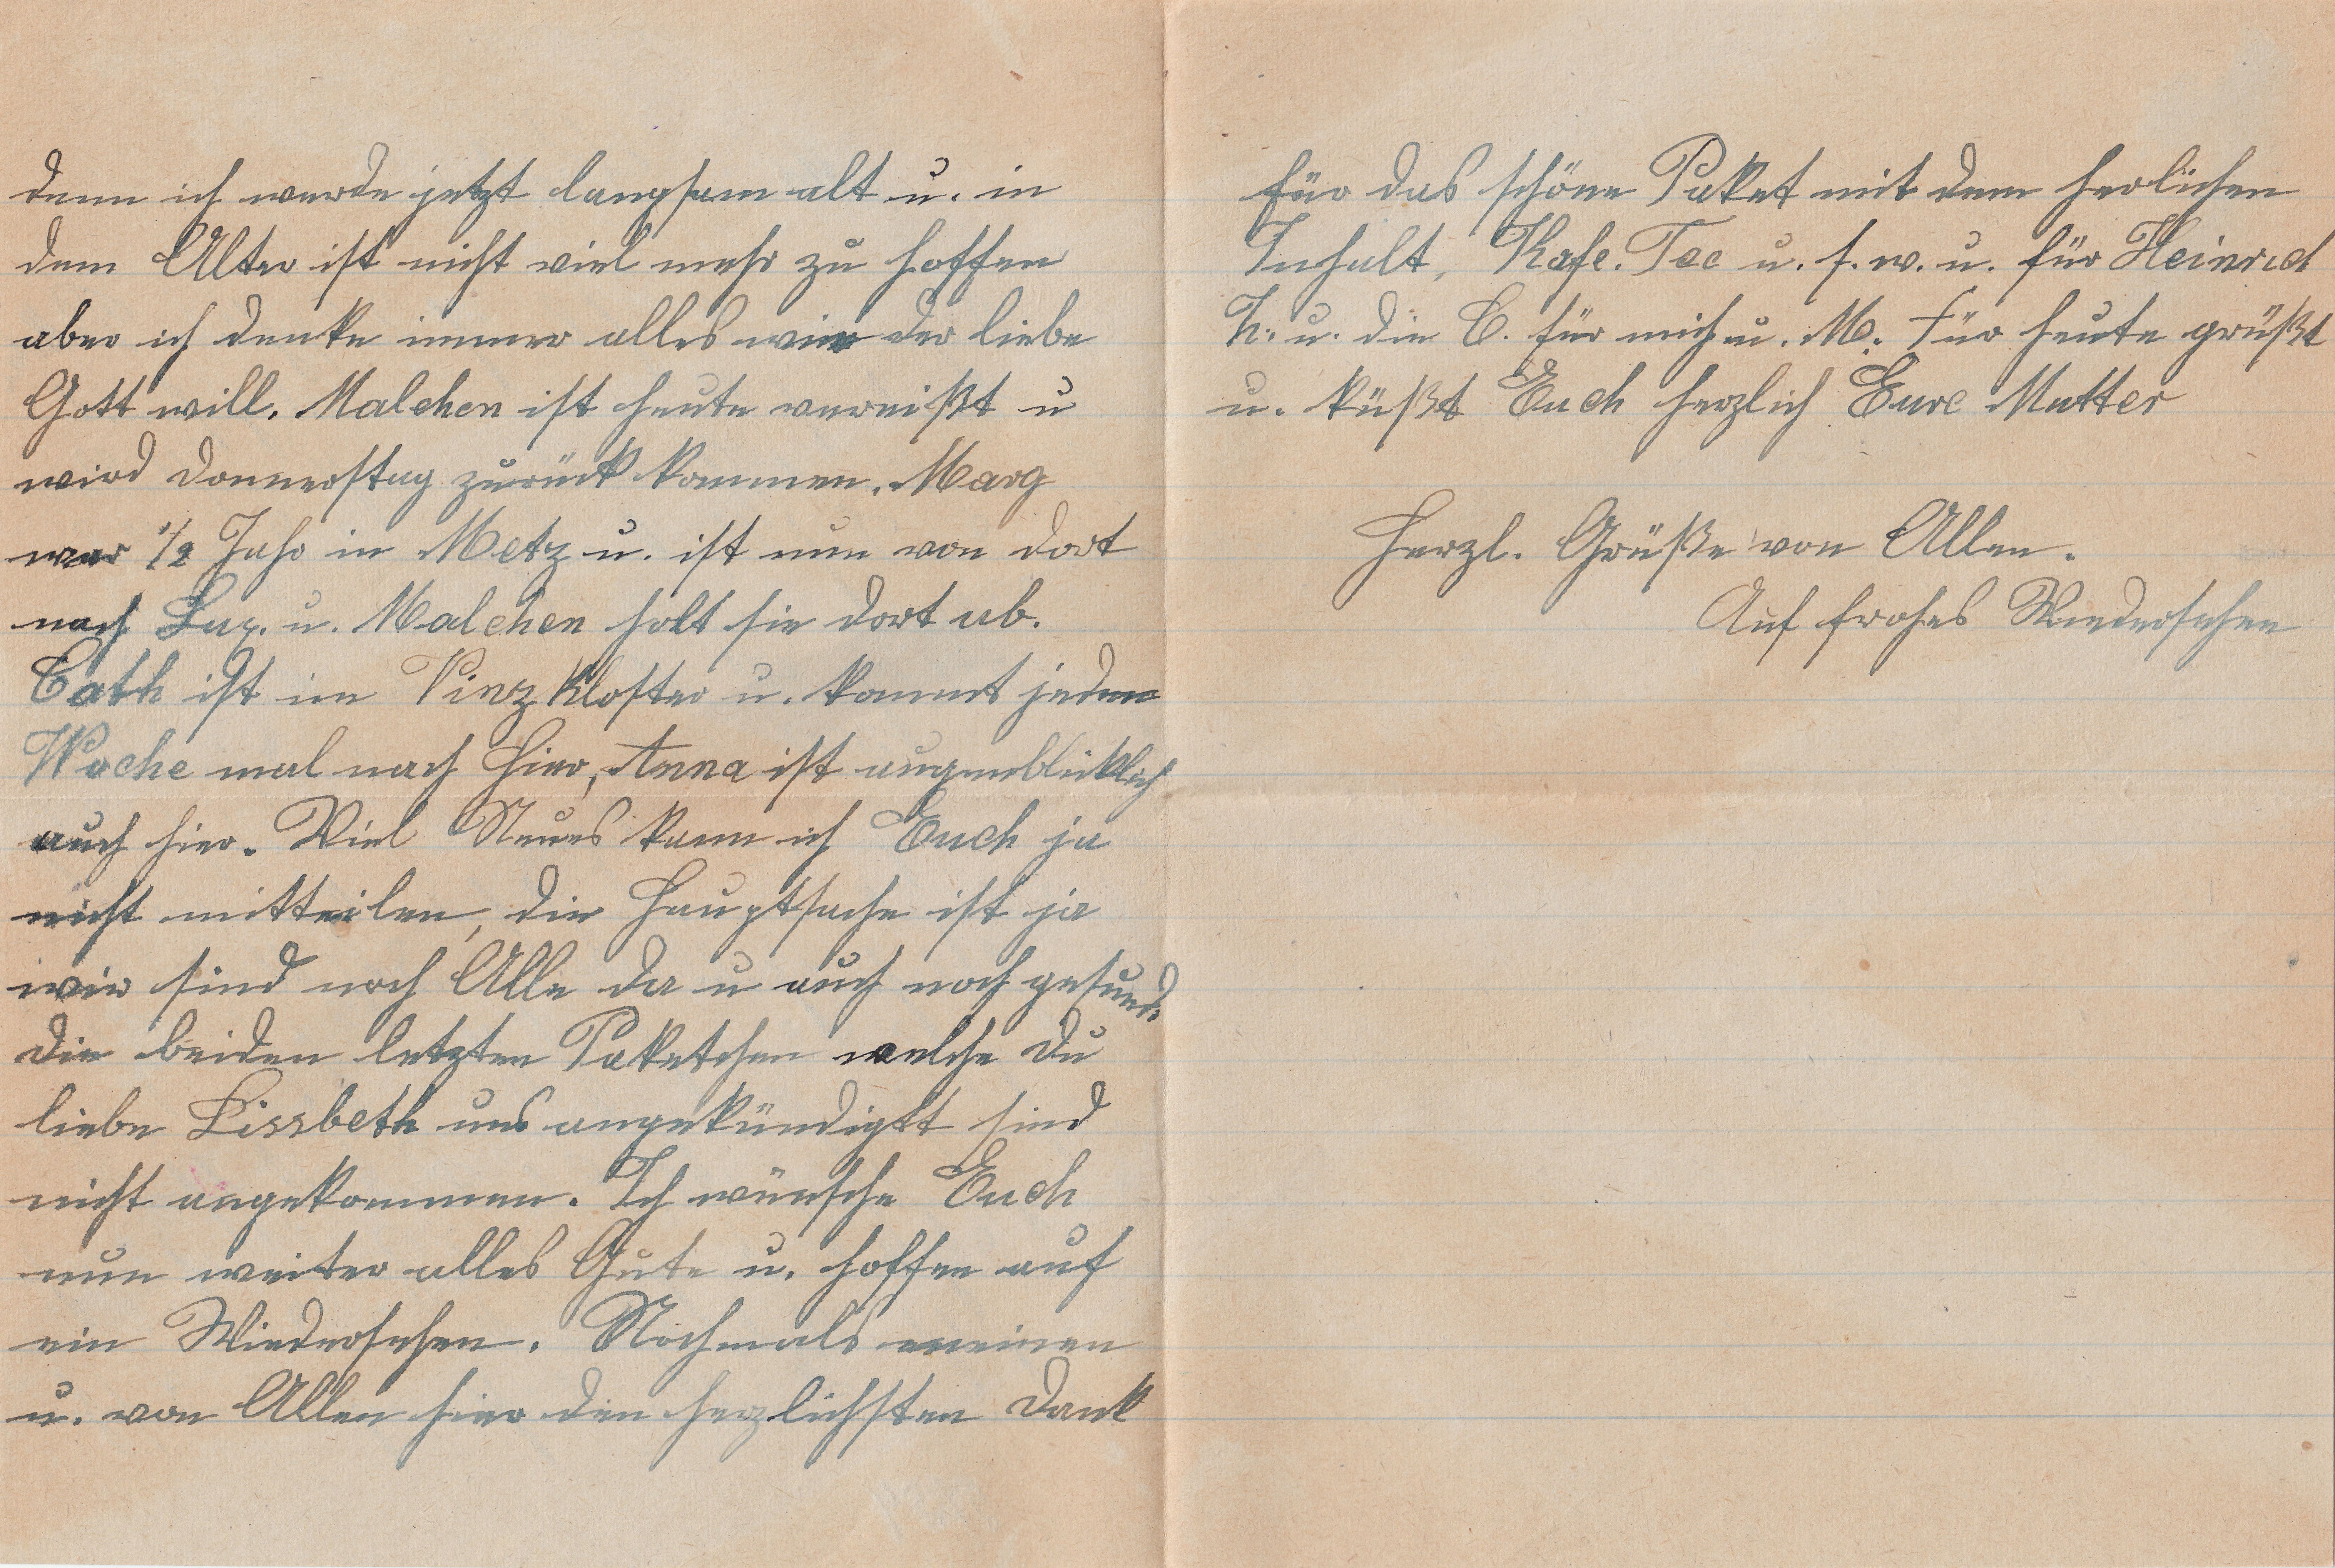 denn ich werde jetzt langsam alt u. in
dem Alter ist nicht viel mehr zu hoffen
aber ich denke immer alles wie der liebe
Gott will. Malchen ist heute vereißt u
wird Donnerstag zurück kommen. Marg
war 1/2 Jahr in Metz u. ist nun von dort
nach Lux. u. Malchen holt sie dort ab.
Cath ist im Vinz Kloster u. kommt jeden
Woche mal nach hier, Anna ist augenblicklich
auch hier. Viel Neues kann ich Euch ja
nicht mitteilen, die Hauptsache ist ja
wir sind noch Alle da u auch noch gesund.
Die beiden letzten Paketchen welche Du
liebe Lissbeth uns angekündigtt sind
nicht angekommen. Ich wünsche Euch
nun weiter alles Gute u. hoffen auf
ein Wiedersehen. Nochmals meinen
u. von Allen hier den herzlichsten Dank
für das schöne Paket mit dem herlichen
Inhalt, Kafe. Tee u. s. w. u. für Heinrich
T. u. die C. für mich u. M. Für heute grüßt
u. küßt Euch herzlich Eure Mutter
Herzl. Grüße von Allen.
Auf frohes Wiedersehen